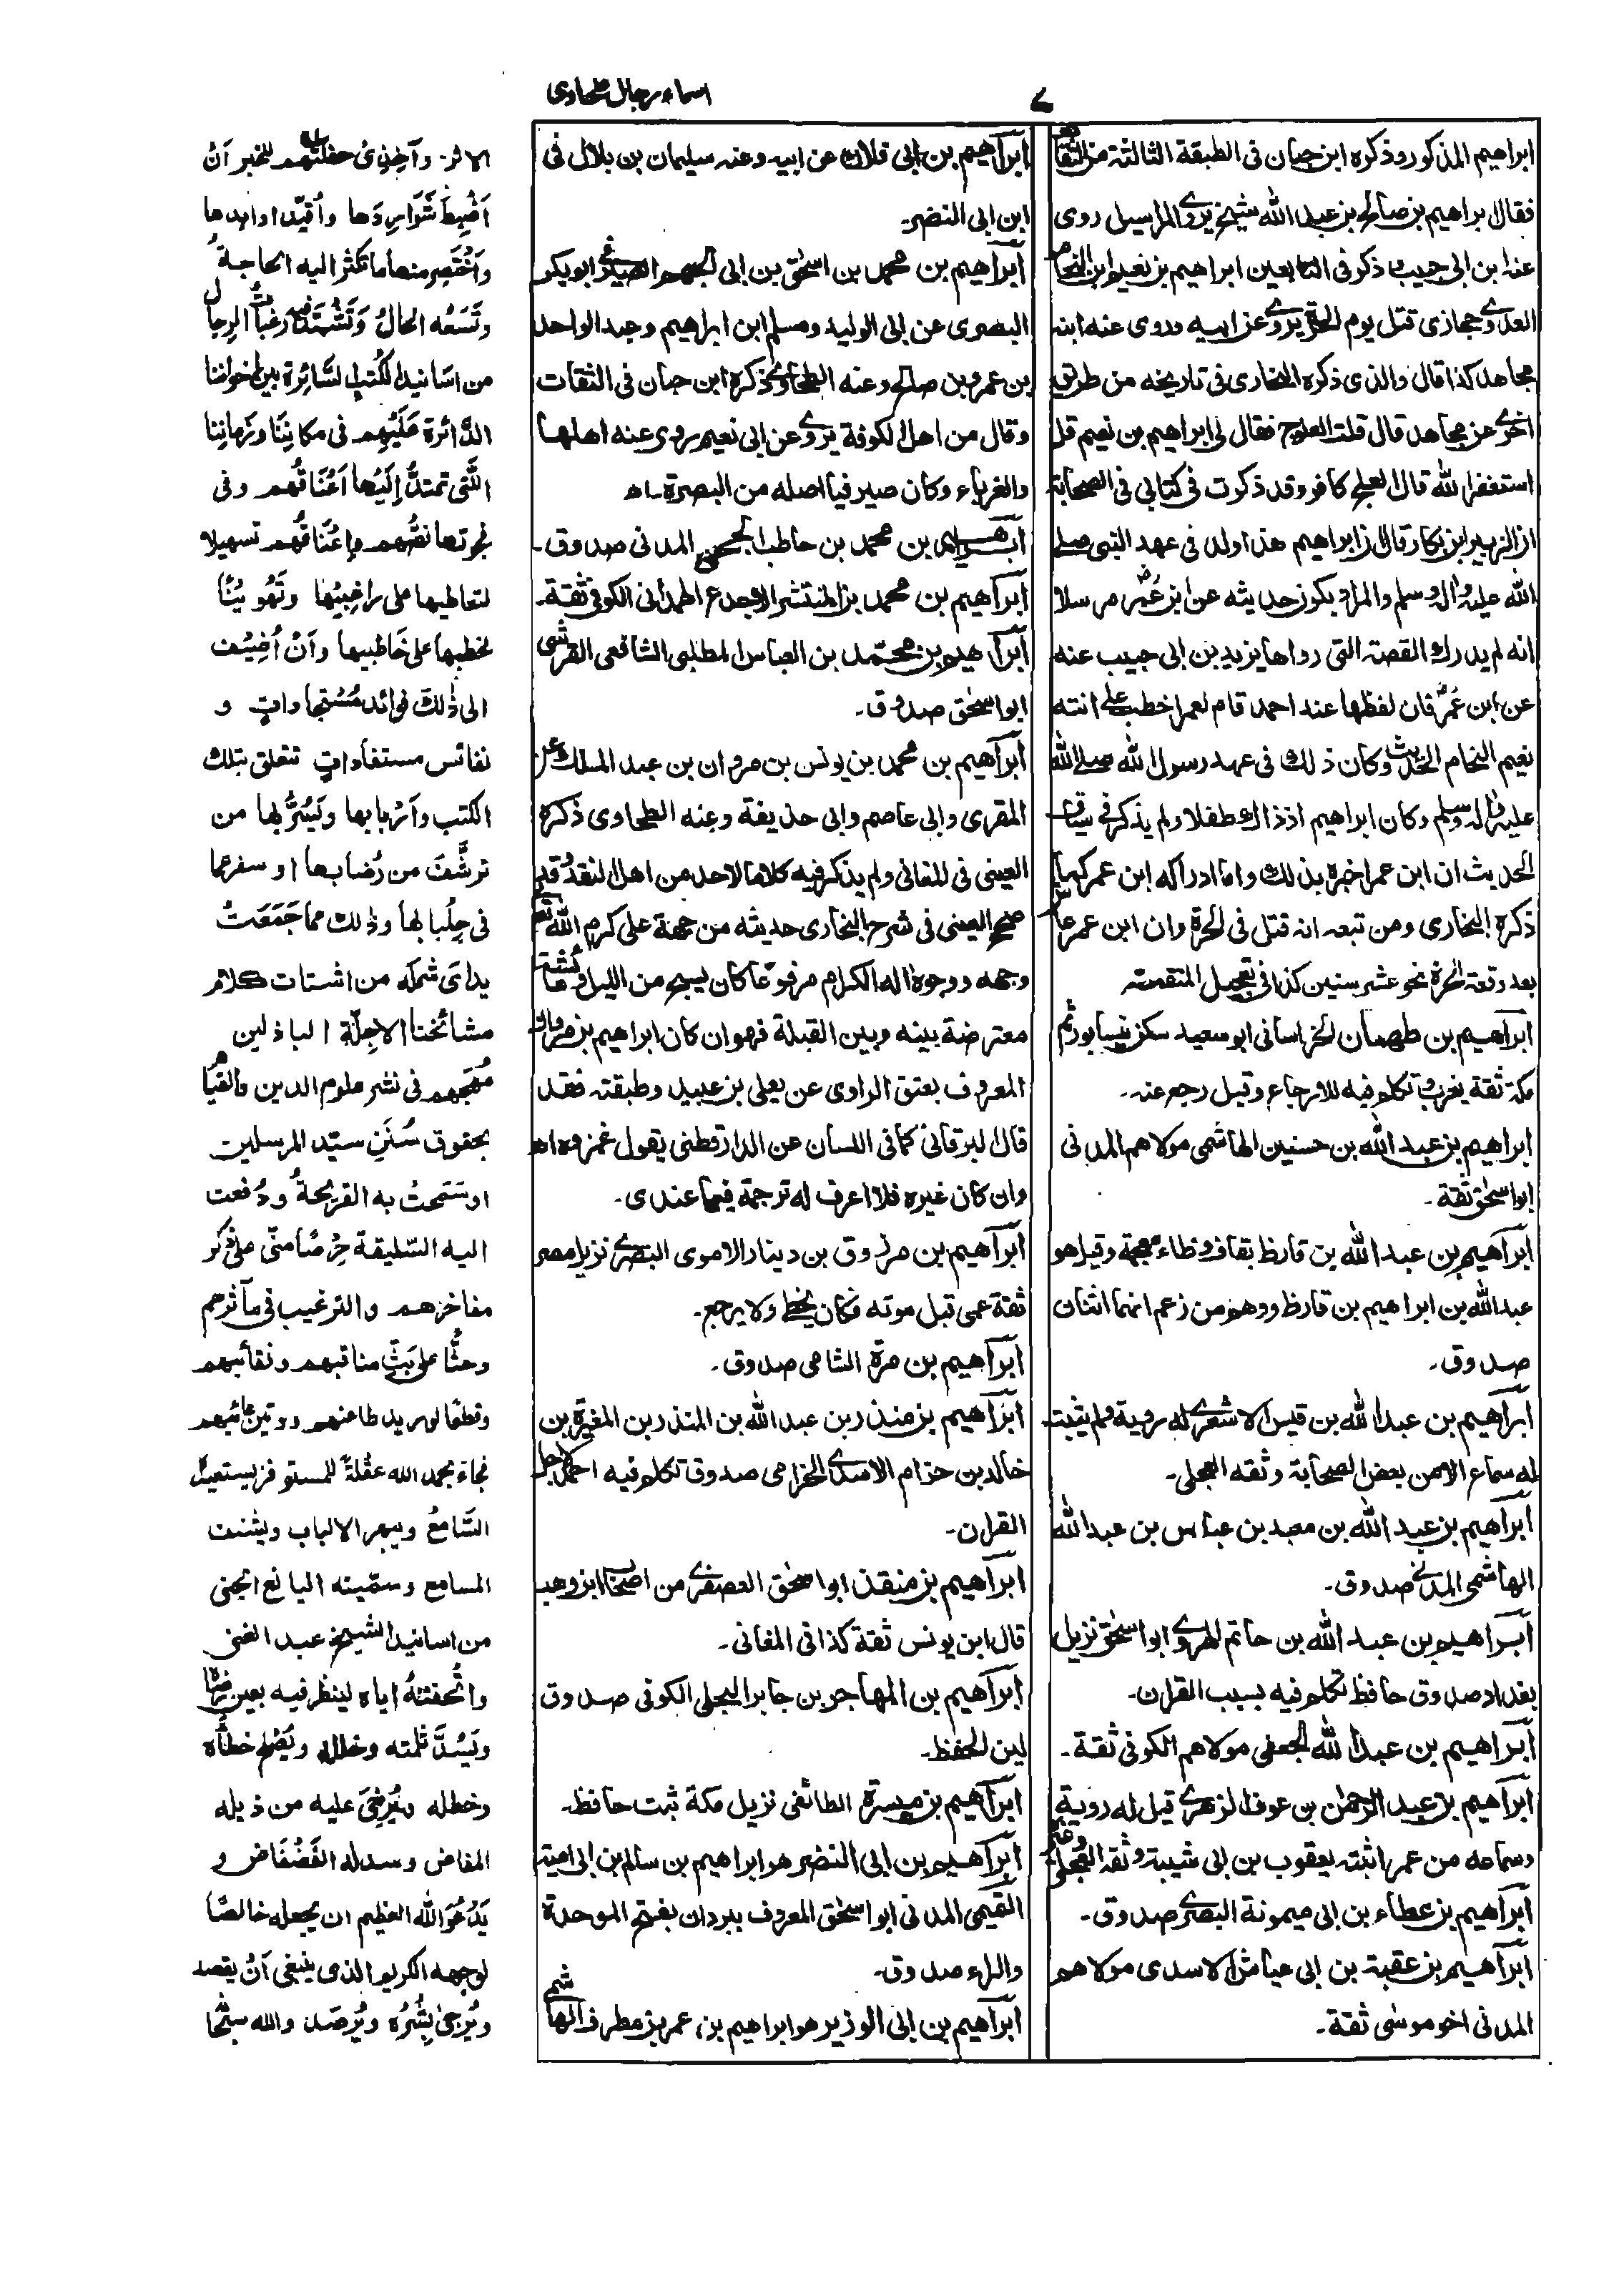 اسماء رجال طحاوی
۷
ابراهيم المذكور وذكره ابن حبان فى الطبقة الثالثة من الثقات
فقال ابراهيم بن صالح بن عبد الله شيخ يروى المراسيل روى
عنه ابن ابى حبيب وذكر فى التابعين ابراهيم بن نعيم ابن النحام
العدوى حجازى قتل يوم الحرة يروى عن ابيه وروى عنه ابنه
مجاهد كذا قال والذى ذكره البخارى فى تاريخه من طريق
اخرى عن مجاهد قال قلت العلوج فقال لى ابراهيم بن نعيم قل
استغفر الله قال العلج كافر وقد ذكرت فى كتابى فى الصحابة
ان الزبير ابن بكار قال ان ابراهيم هذا ولد فى عهد النبى صلى
الله عليه واله وسلم والمراد بكون حديثه عن ابن عمر مرسلا
انه لم يدرك القصة التى رواها يزيد بن ابى حبيب عنه
عن ابن عمر فان لفظها عند احمد قام لعمر اخطب على ابنته
نعيم النحام الحديث وكان ذلك فى عهد رسول الله صلى الله
عليه واله وسلم وكان ابراهيم اذ ذاك طفلا ولم يذكر فى سياق
الحديث ان ابن عمر اخبره بذلك واما ادراكه ابن عمر كما
ذكره البخارى ومن تبعه انه قتل فى الحرة وان ابن عمر عاش
بعد وقعة الحرة نحو عشر سنين كذا فى تعجيل المنفعة
ابراهيم بن طهمان الخراسانى ابو سعيد سكن نيسابور ثم
مكة ثقة يغرب وتكلم فيه للارجاء وقيل رجع عنه۔
ابراهيم بن عبد الله بن حنين الهاشمى مولاهم المدنى
ابو اسحق ثقة۔
ابراهيم بن عبد الله بن قارظ بقاف وظاء معجمة وقيل هو
عبد الله بن ابراهيم بن قارظ ووهم من زعم انهما اثنان
صدوق۔
ابراهيم بن عبد الله بن قيس الاشعرى له روية ولم يثبت
له سماع الا من بعض الصحابة وثقه العجلى۔
ابراهيم بن عبد الله بن معبد بن عباس بن عبد الله
الهاشمى المدنى صدوق۔
ابراهيم بن عبد الله بن حاتم الهروى ابو اسحق نزيل
بغداد صدوق حافظ تكلم فيه بسبب القران۔
ابراهيم بن عبد الله الجعفى مولاهم الكوفى ثقة۔
ابراهيم بن عبد الرحمن بن عوف الزهرى قيل له روية
وسماعه من عمر اثبته يعقوب بن ابى شيبة وثقه العجلى وغيره
ابراهيم بن عطاء بن ابى ميمونة البصرى صدوق۔
ابراهيم بن عقبة بن ابى عياش الاسدى مولاهم
المدنى اخو موسى ثقة۔
ابراهيم بن ابى فلان عن ابيه وعنه سليمان بن بلال فى
ابن ابى النضر۔
ابراهيم بن محمد بن اسحق بن ابى الجهم الصيرفى ابو بكر
البصرى عن ابى الوليد ومسلم ابن ابراهيم وعبد الواحد
بن عمرو بن صالح وعنه الطحاوى ذكره ابن حبان فى الثقات
وقال من اهل الكوفة يروى عن ابى نعيم روى عنه اهلها
والغرباء وكان صيرفيا اصله من البصرة۔اھ
ابراهيم بن محمد بن حاطب الجمحى المدنى صدوق۔
ابراهيم بن محمد بن المنتشر الاجدع الهمدانى الكوفى ثقة۔
ابراهيم بن محمد بن العباس المطلبى الشافعى القرشى
ابو اسحق صدوق۔
ابراهيم بن محمد بن يونس بن مروان بن عبد الملك عن
المقرى وابى عاصم وابى حذيفة وعنه الطحاوى ذكره
العينى فى المغانى ولم يذكر فيه كلاما لاحد من اهل النقد وقد
صحح العينى فى شرح البخارى حديثه من جهة على كرم الله تعالى
وجهه ووجوه اله الكرام مرفوعا كان يسبح من الليل وعائشة
معترضة بينه وبين القبلة فهو ان كان ابراهيم بن مروان
المعروف بعتق الراوى عن يعلى بن عبيد وطبقته فقد
قال البرقانى كما فى اللسان عن الدارقطنى يقول غمزوه اھ
وان كان غيره فلا اعرف له ترجمة فيما عندى۔
ابراهيم بن مرزوق بن دينار الاموى البصرى نزيل مصر
ثقة عمى قبل موته فكان يخطى ولا يرجع۔
ابراهيم بن مرة الشامى صدوق۔
ابراهيم بن منذر بن عبد الله بن المنذر بن المغيرة بن
خالد بن حزام الاسدى الحزامى صدوق تكلم فيه احمد لاجل
القران۔
ابراهيم بن منقذ ابو اسحق العصفرى من اصحاب ابن وهب
قال ابن يونس ثقة كذا فى المغانى۔
ابراهيم بن المهاجر بن جابر البجلى الكوفى صدوق
لين الحفظ۔
ابراهيم بن ميسرة الطائفى نزيل مكة ثبت حافظ۔
ابراهيم بن ابى النضر هو ابراهيم بن سالم بن ابى امية
التيمى المدنى ابو اسحق المعروف ببردان بفتح الموحدة
والراء صدوق۔
ابراهيم بن ابى الوزير هو ابراهيم بن عمر بن مطرف الهاشمى
الاثر۔ وآخذى حفلتهم للخبر أن
أضبط شواردها وأقيد اوابدها
وأختصر منها ما تكثر اليه الحاجة
وتسعه الحال وتشتد فيه رغبات الرجال
من اسانيد الكتب السائرة بين اخواننا
الدائرة عليهم فى مكاننا وزماننا
التى تمتد إليها أعناقهم وفى
نجوتها نصهم وإعناقهم تسهيلا
لتعاطيها على راغبيها وتهوينا
لخطبها على خاطبيها وأن أضيف
الى ذلك فوائد مستجادات و
نفائس مستفادات تتعلق بتلك
الكتب وأربابها ويسر بها من
ترشف من رضابها او سفر عما
فى جلبابها وذلك مما جمعت
يداى شمله من اشتات كلام
مشائخنا الاجلة الباذلين
مهجهم فى نشر علوم الدين والقيام
بحقوق سنن سيد المرسلين
او سمحت به القريحة ودفعت
اليه السليقة حرصا منى على ذكر
مفاخرهم والترغيب فى مآثرهم
وحثا على بث مناقبهم ونقائبهم
وقطعا لوريد طاعنهم ووتين عائبهم
فجاء بحمد الله عقلة للمستوفز يستعيده
السامع ويبهر الالباب ويشنف
المسامع وسميته اليانع الجنى
من اسانيد الشيخ عبد الغنى
واتحفته اياه لينظر فيه بعين
ويسد ثلمته وخلله ويصلح خطأه
وخطله ويرخى عليه من ذيله
المفاض وسدله الفضفاض و
يدعو الله العظيم ان يجعله خالصا
لوجهه الكريم الذى ينبغى أن يقصد
ويرجى بشره ويرصد والله سبحانه